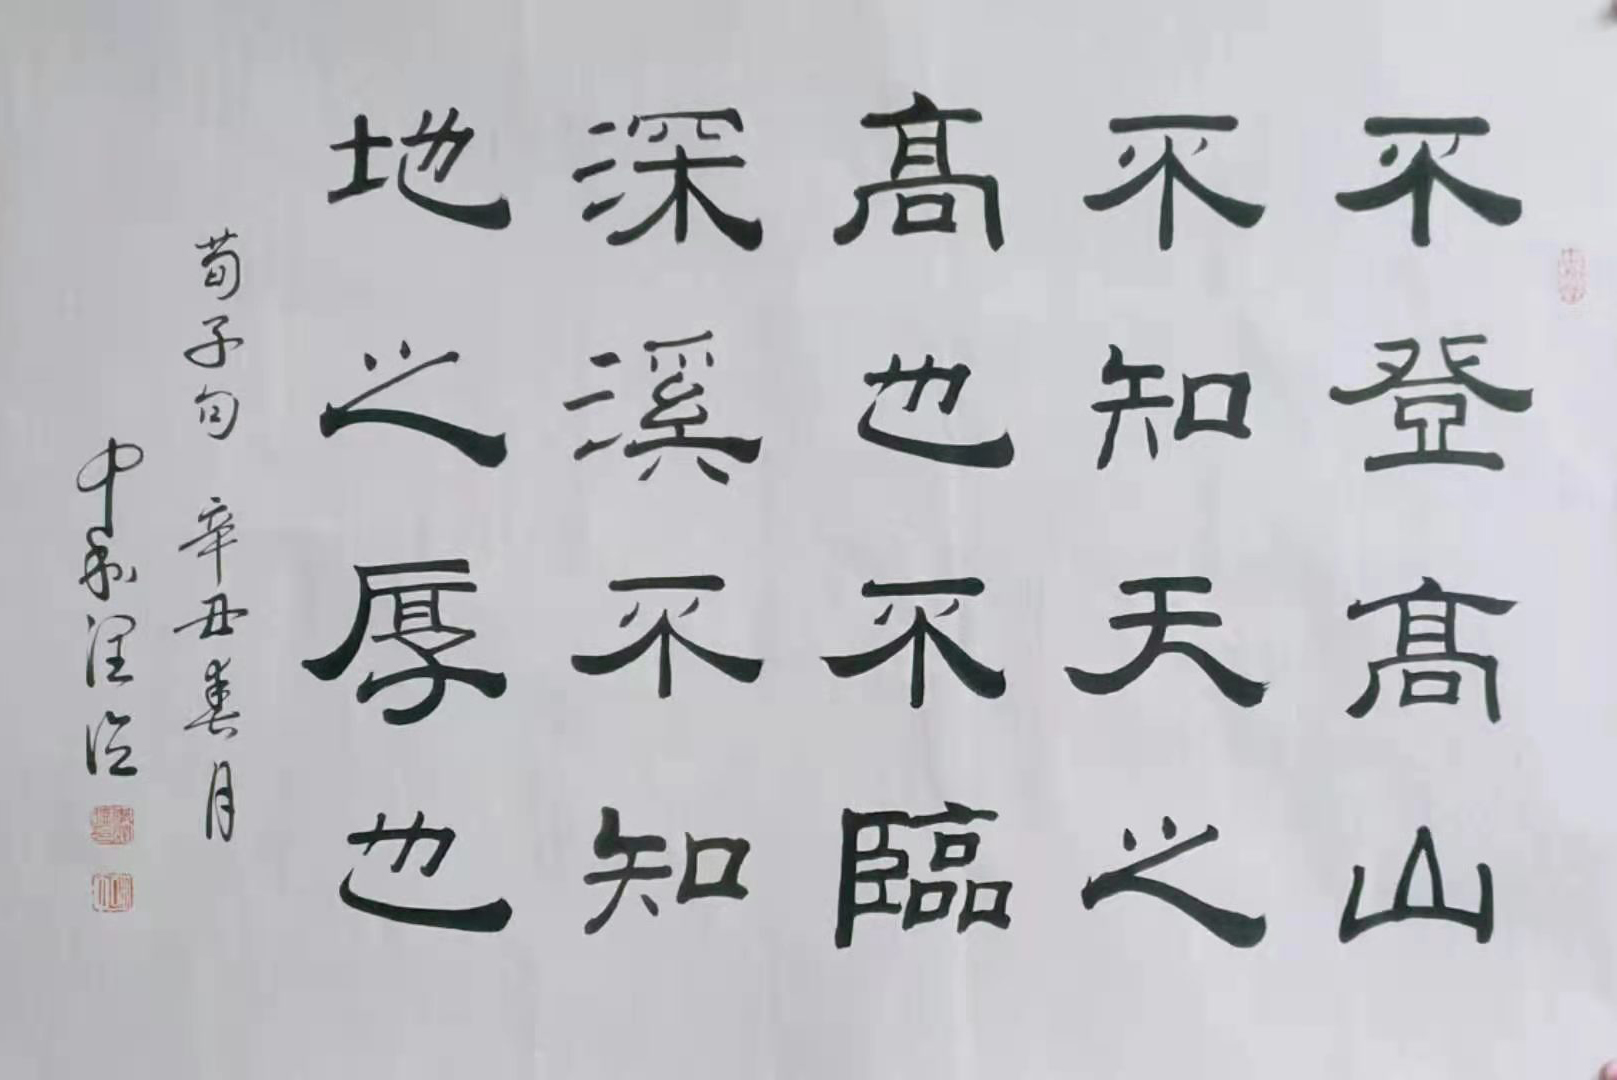 不登高山
不知天之
高也不臨
深溪不知
地之厚也
荀子句 辛丑春月
中